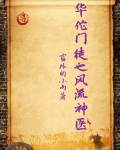 华佗门徒之风流神医
的小雨著